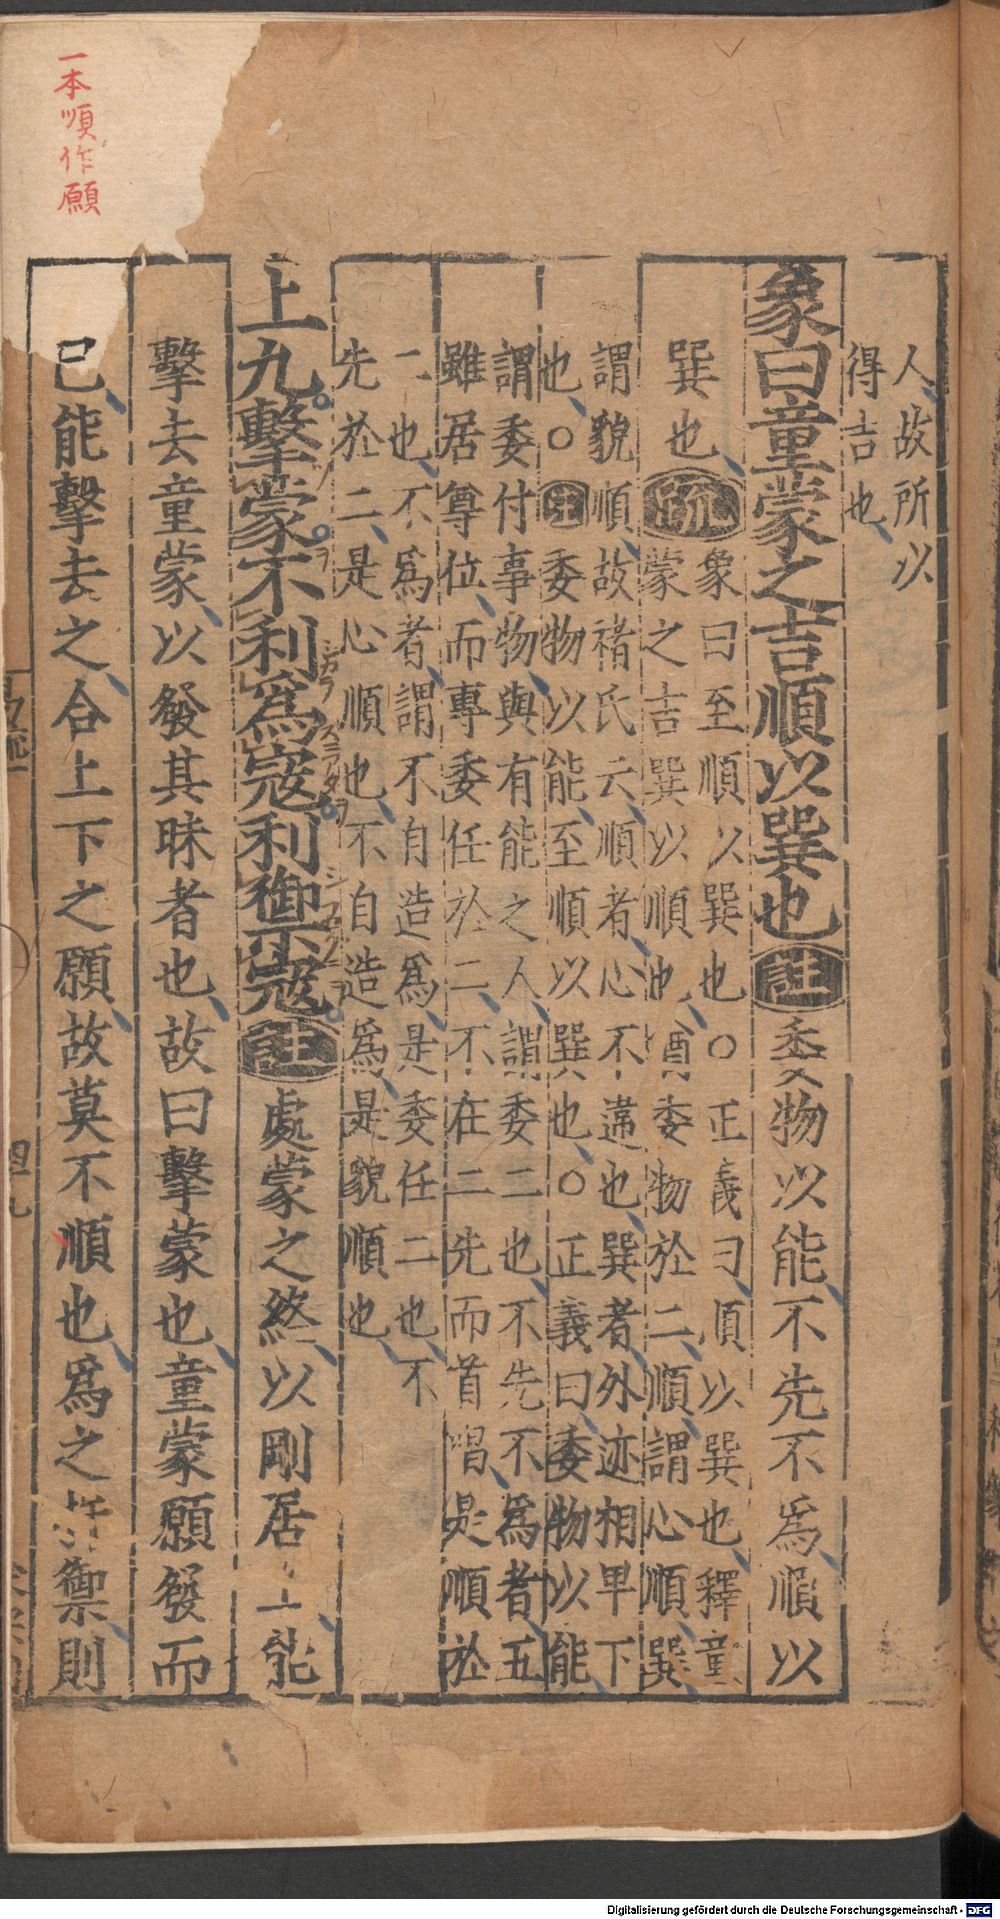 一本順作願
人、故所以
得吉也、
象曰童蒙之吉順以巽也註委物以能不先不爲、順以
巽也、疏
象曰至順以巽也○正義曰、順以巽也、釋童
蒙之吉巽以順也、猶委物於二、順謂心順、巽
謂貌順、故褚氏云、順者、心不違也、巽者、外迹相卑下
也、○註委物以能、至順以巽也、○正義曰、委物以能、
謂委付事物、與有能之人、謂委二也、不先不爲者、五
雖居尊位、而專委任於二、不在二先而首唱、是順於
二也、不爲者、謂不自造爲、是委任二也、不
先於二、是心順也、不自造爲、是貌順也、
上九擊蒙不利爲寇利禦寇註處蒙之終、以剛居上、能
擊去童蒙、以發其昧者也、故曰擊蒙也、童蒙願發而
已、能擊去之、合上下之願、故莫不順也、爲之扞禦、則
シカラ
スニアタヲ
易疏一
四十九
Digitalisierung gefördert durch die Deutsche Forschungsgemeinschaft - DFG